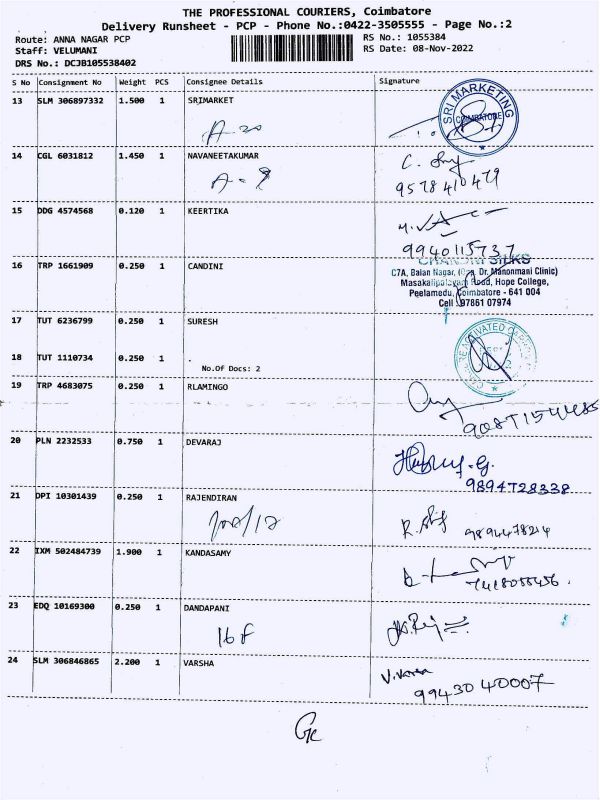 THE PROFESSIONAL COURIERS, Coimbatore
Delivery Runsheet - PCP - Phone No.:0422-3505555 - Page No.:2
Route: ANNA NAGAR PCP
RS No.: 1055384
Staff: VELUMANI
RS Date: 08-Nov-2022
DRS No.: DCJB105538402
S No Consignment No Weight PCS Consignee Details Signature
13 SLM 306897332 1.500 1 SRIMARKET
SRI MARKETING
COIMBATORE
A-20
14 CGL 6031812 1.450 1 NAVANEETAKUMAR
A-9
9578410479
15 DDG 4574568 0.120 1 KEERTIKA
9940115737
16 TRP 1661909 0.250 1 CANDINI
CHANDNI SILKS
C7A, Balan Nagar, (Opp. Dr. Manonmani Clinic)
Masakalipalayam Road, Hope College,
Peelamedu, Coimbatore - 641 004
Cell : 97861 07974
17 TUT 6236799 0.250 1 SURESH
18 TUT 1110734 0.250 1
No.Of Docs: 2
19 TRP 4683075 0.250 1 RLAMINGO
20 PLN 2232533 0.750 1 DEVARAJ
9894728338
21 DPI 10301439 0.250 1 RAJENDIRAN
9894478214
22 IXM 502484739 1.900 1 KANDASAMY
23 EDQ 10169300 0.250 1 DANDAPANI
16 F
24 SLM 306846865 2.200 1 VARSHA
V.Varsa
9943040007